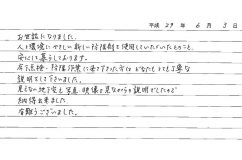 平成 29 年 6 月 3 日
お世話になりました。
人と環境にやさしい新しい防除剤を使用していただいたとのこと、
安心して暮らしております。
今日点検・防除作業に来て下さった方々はどなたもとても丁寧な
説明をして下さいました。
見えない地下だと写真、映像を見ながらの説明でしたので
納得出来ました。
有難うございました。